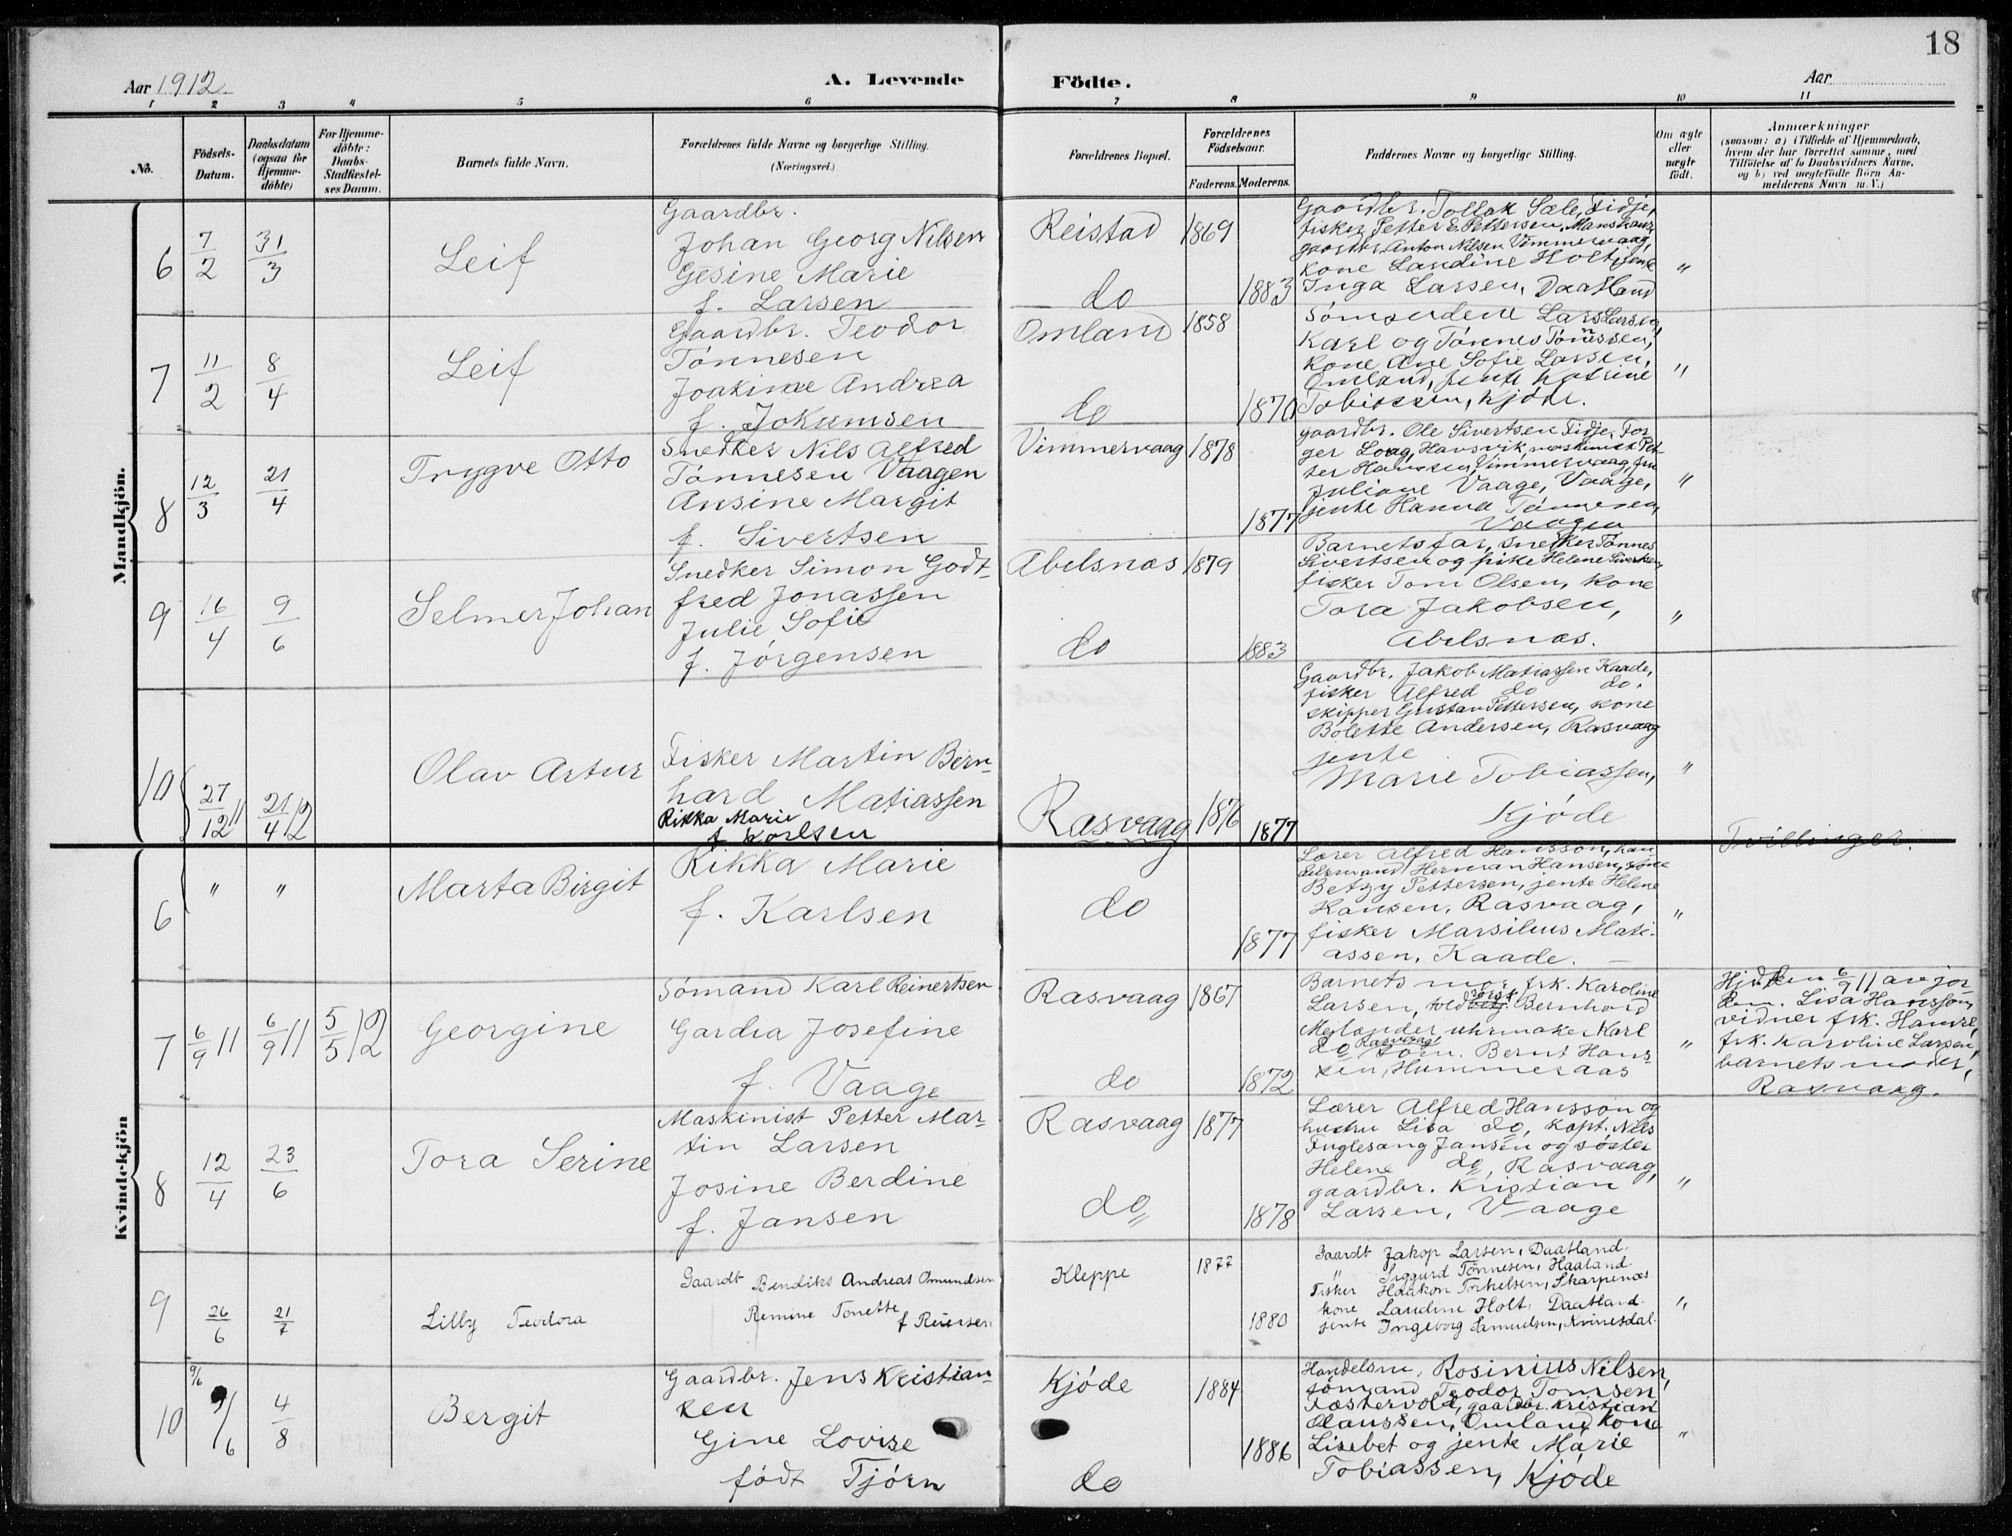 18
Aar 1912.
A. Levende
Födte.
Aar
1 2 3 4 5 6 7 8 9 10 11
No.
Födsels-Datum.
Daabsdatum (ogsaa for Hjemme-döbte)
For Hjemme-döbte: Daabs-Stadfæstel-ses Datum.
Barnets fulde Navn.
Forældrenes fulde Navne og borgerlige Stilling. (Næringsvei.)
Forældrenes Bopæl.
Forældrenes Födselsaar.
Faderens. Moderens.
Faddernes Navne og borgerlige Stilling.
Om ægte eller uægte födt.
Anmærkninger
(saasom: a) i Tilfælde af Hjemmedaab,
hvem der har forrettet samme, med
Tilföielse af to Daabsvidners Navne,
og b) ved uægtefödte Börn An-
melderens Navn m. V.)
Mandkjön.
6 7/2 31/3 Leif
Gaardbr.
Johan Georg Nilsen
Gesine Marie
f. Larsen
Reistad 1869
do 1883
Gaardbr. Tollak Sæle, Fidje,
fisker Petter E. Pettersen,
gaardbr. Anton Nilsen Vimmervaag,
kone Landine Holt, jente
Inga Larsen, Daatland
"
7 11/2 8/4 Leif
Gaardbr. Teodor
Tönnesen
Joakime Andrea
f. Jokumsen
Omland 1858
do 1870
Lars Larsen,
Karl og Tönnes Tönnessen,
kone Ane Sofie Larsen,
Omland, jente Katrine
Tobiassen, Kjöde.
"
8 12/3 21/4 Trygve Otto
Snedker Nils Alfred
Tönnesen Vaagen
Ansine Margit
f. Sivertsen
Vimmervaag 1878
1877
gaardbr. Ole Sivertsen Fidje, Tor-
ger Loag, Hausvik, maskinist Pet-
ter Hansen, Vimmervaag, fru
Juliane Vaage, Vaage,
jente Hanna Tönnesen,
Vaagen
"
9 16/4 9/6 Selmer Johan
Snedker Simon Godt-
fred Jonassen
Julie Sofie
f. Jörgensen
Abelsnæs 1879
do 1883
Barnets far, snedker Tönnes
Sivertsen og pike Helene Sivertsen,
fisker Tom Olsen, kone
Tora Jakobsen,
Abelsnæs.
"
10 27/12 11 21/4 12 Olav Artur
Fisker Martin Bern-
hard Matiassen
Rikka Marie
f. Karlsen
Rasvaag 1876
1877
Gaardbr. Jakob Matiassen Kaade,
fisker Alfred do do.
skipper Gustav Pettersen, kone
Bolette Andersen, Rasvaag
jente
Marie Tobiassen,
Kjöde
"
Tvillinger.
Kvindekjön
6 " " Marta Birgit
Rikka Marie
f. Karlsen
do
1877
Lærer Alfred Hansson, han-
delsmand Herman Hansen, kone
Betzy Pettersen, jente Helene
Hansen, Rasvaag,
fisker Marsilius Mati-
assen, Kaade.
"
7 6/9 11 6/9 11 5/5 12 Georgine
Sömand Karl Reinertsen
Gardia Josefine
f. Vaage
Rasvaag 1867
do 1872
Barnets mor, frk. Karoline
Larsen, Bernhard
Meylænder, uhrmaker Karl
do Rasvaag, söm. Bernt Hans-
sen, Hummeraas
"
Hjd. den 6/9 11 av jor-
dem. Lisa Hansson,
vidner frk. Hamre,
frk. Karoline Larsen,
barnets moder,
Rasvaag.
8 12/4 23/6 Tora Serine
Maskinist Petter Mar-
tin Larsen
Josine Berdine
f. Jansen
Rasvaag 1877
do 1878
Lærer Alfred Hansson og
hustru Lisa do, kapt. Nils
Fuglesang Jansen og söster
Helene do, Rasvaag,
gaardbr. Kristian
Larsen, Vaage
"
9 26/6 21/7 Lilly Teodora
Gaardt Bendiks Andreas Omundsen
Remine Tonette
f Reiersen
Kleppe 1877
1880
Gaardt Jakop Larsen, Daatland.
" Siggurd Tönnesen, Haaland.
Fisker Haakon Torkelsen, Skarpenæs
kone Landine Holt, Daatland.
jente Ingeborg Samuelsen, Kvinesdal.
"
10 9/6 9/6 4/8 Bergit
Gaardbr. Jens Kristian-
sen
Gine Lovise
födt Tjörn
Kjöde 1884
do 1886
Handelsm. Rosinius Nilsen,
sömand Teodor Tomsen
Fæstervold, gaardbr. Kristian
Olaussen, Omland, kone
Lisebet og jente Marie
Tobiassen, Kjöde
"